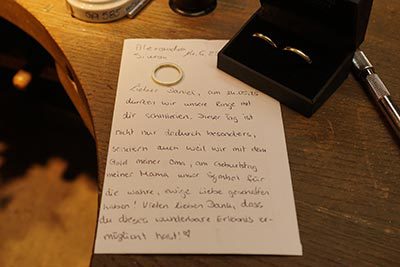 Alexandra
Lieber Daniel, am 24.05.25
durften wir unsere Ringe mit
dir schmieden. Dieser Tag ist
nicht nur dadurch besonders,
sondern auch weil wir mit dem
Gold meiner Oma, am Geburtstag
meiner Mama unser Symbol für
die wahre, ewige Liebe geschaffen
haben! Vielen lieben Dank, dass
du dieses wunderbare Erlebnis er-
möglicht hast! ♡